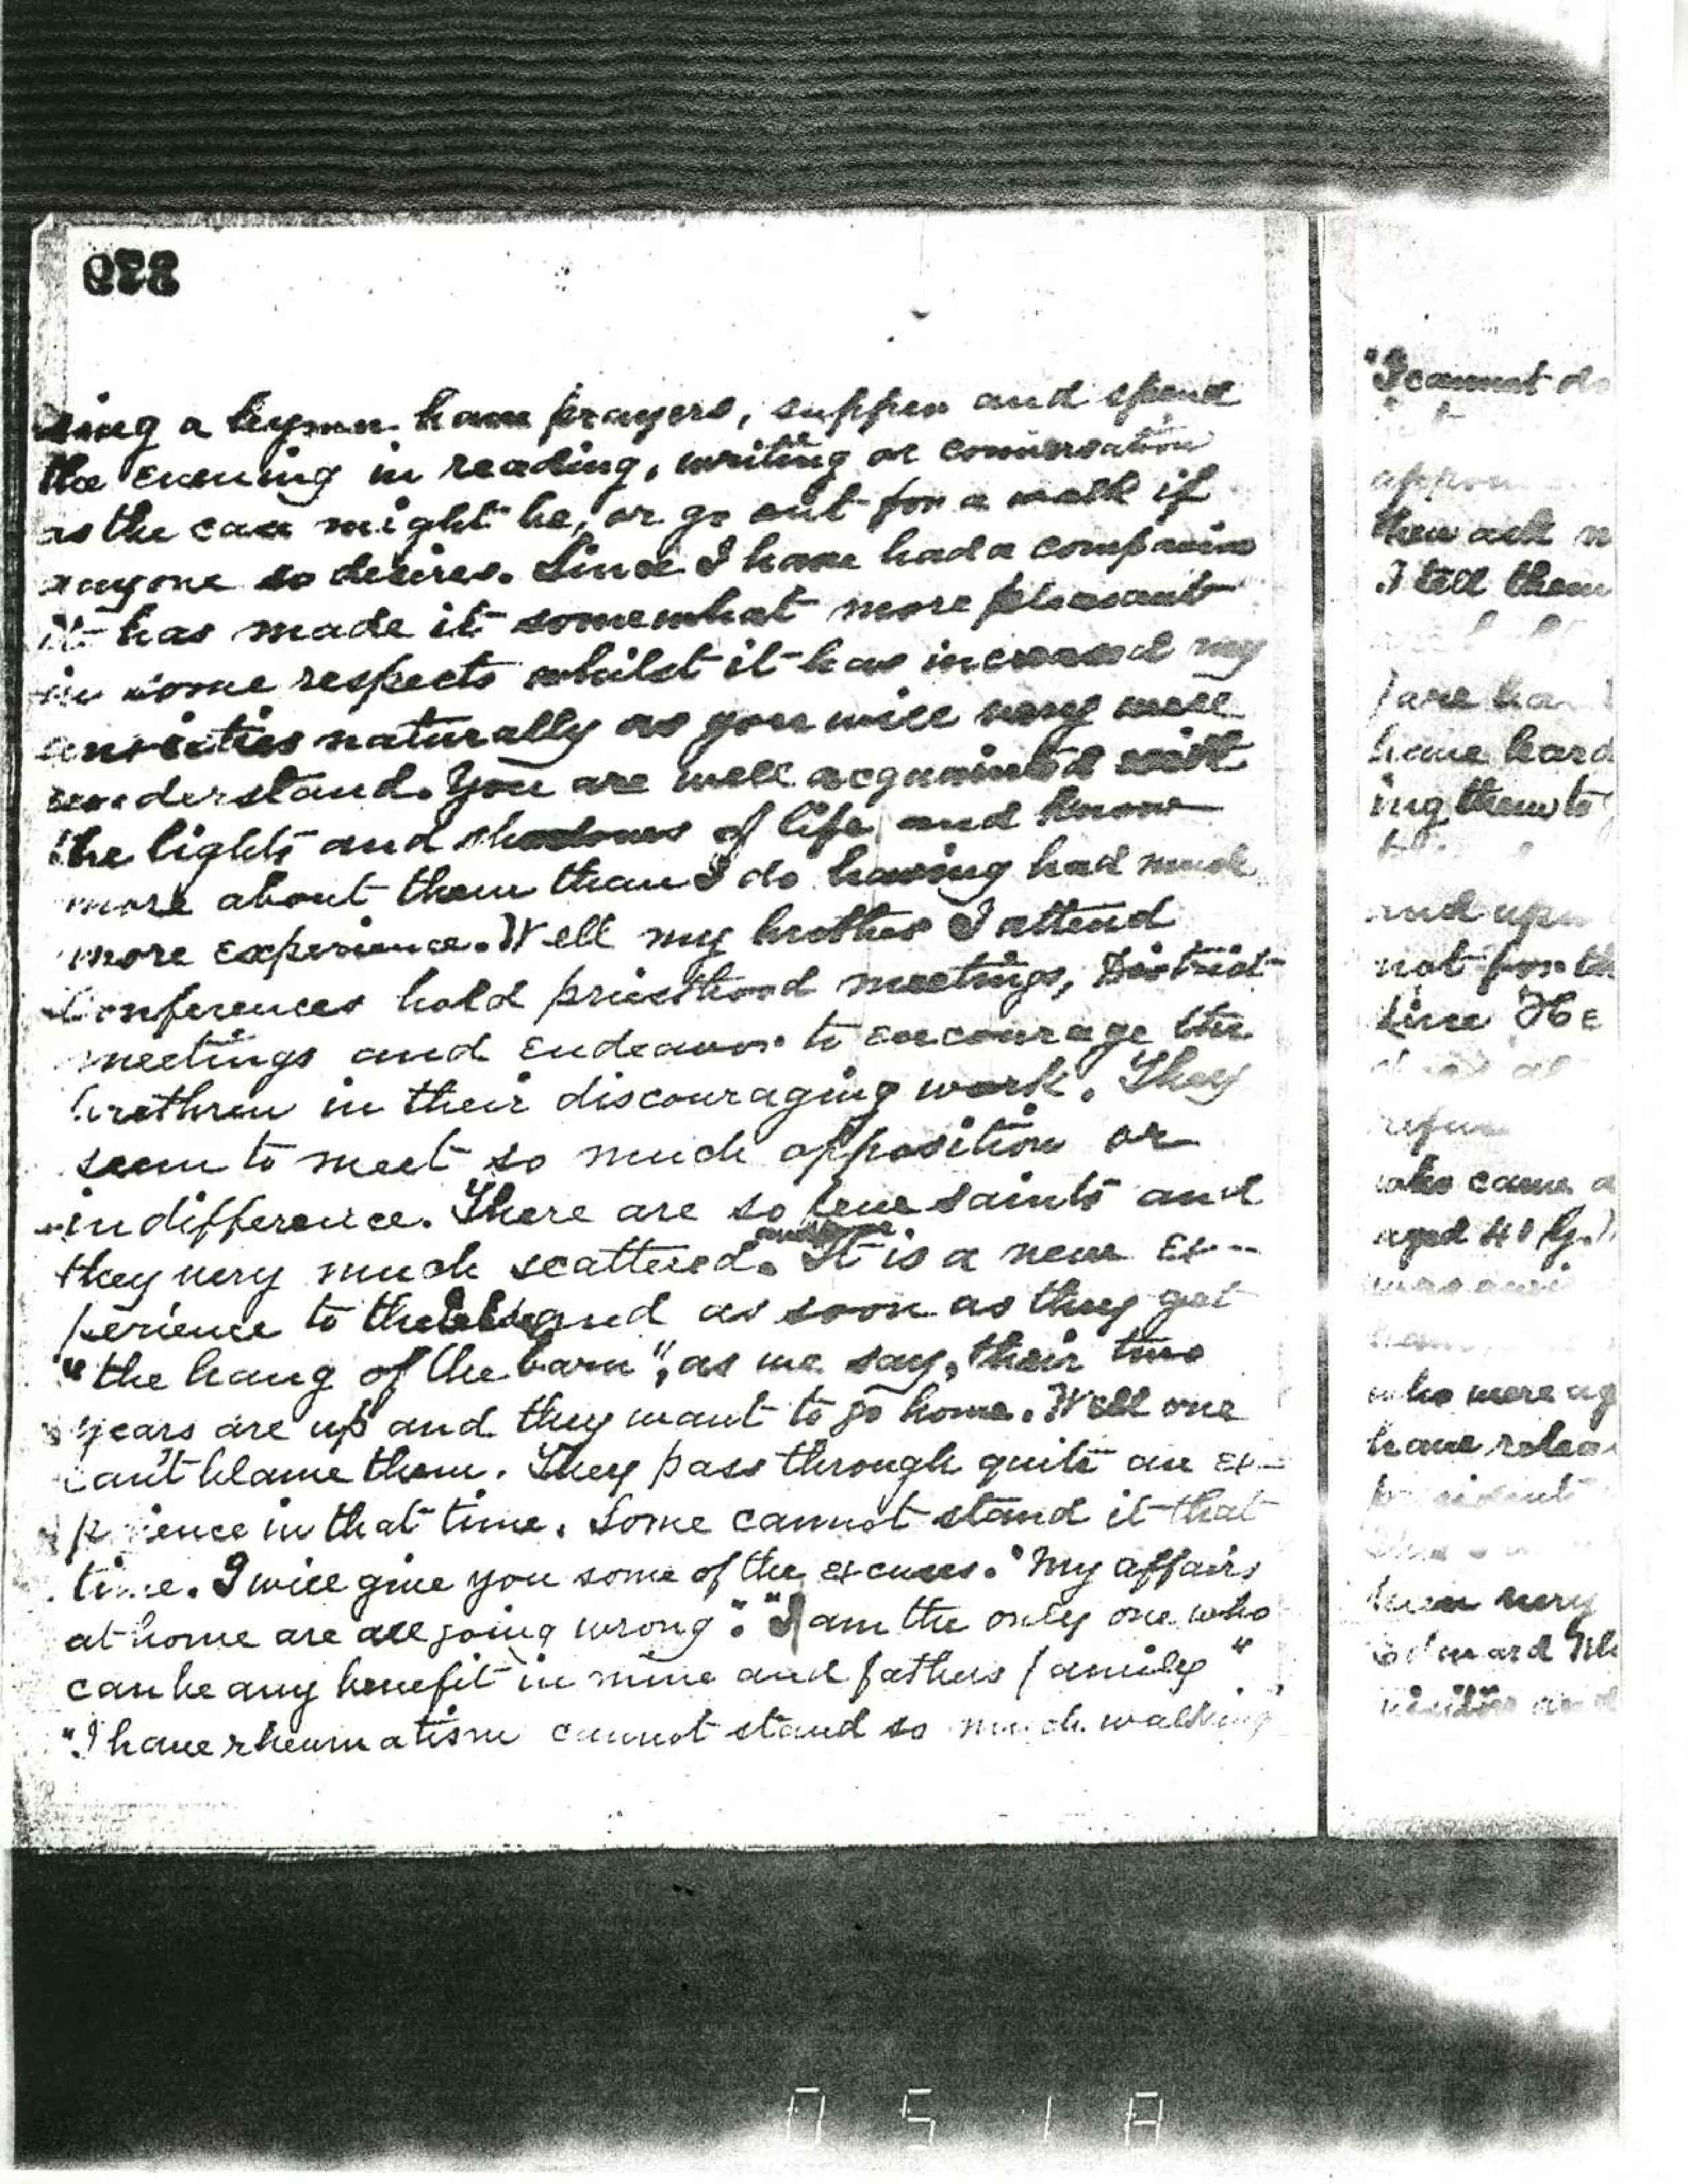 sing a hymn have prayers, supper and spend
the evening in reading, writing or conversation
as the case might be, or go out for a walk if
anyone so desires. Since I have had a companion
it has made it somewhat more pleasant
in some respects whilst it has increased my
anxieties naturally as you will very well
understand. You are well acquainted with
the lights and shadows of life and know
more about them than I do having had much
more experience. Well my brother I attend
Conferences hold priesthood meetings, District
meetings and endeavor to encourage the
brethren in their discouraging work. They
seem to meet so much opposition or
indifference. There are so few saints and
they very much scattered. It is a new ex-
perience to the and as soon as they get
"the hang of the barn", as we say, their two
years are up and they want to go home. Well one
can't blame them. They pass through quite an ex-
p ience in that time. Some cannot stand it that
time. I will give you some of the excuses. "My affairs
at home are all going wrong". "I am the only one who
can be any benefit in mine and fathers family"
"I have rheumatism cannot stand so much walking
"I cannot do
then ask
I tell them
have hard
ing them to
and upon
not for th
time He
who came a
aged 40
who were ag
have relea
been very
Edward
0518